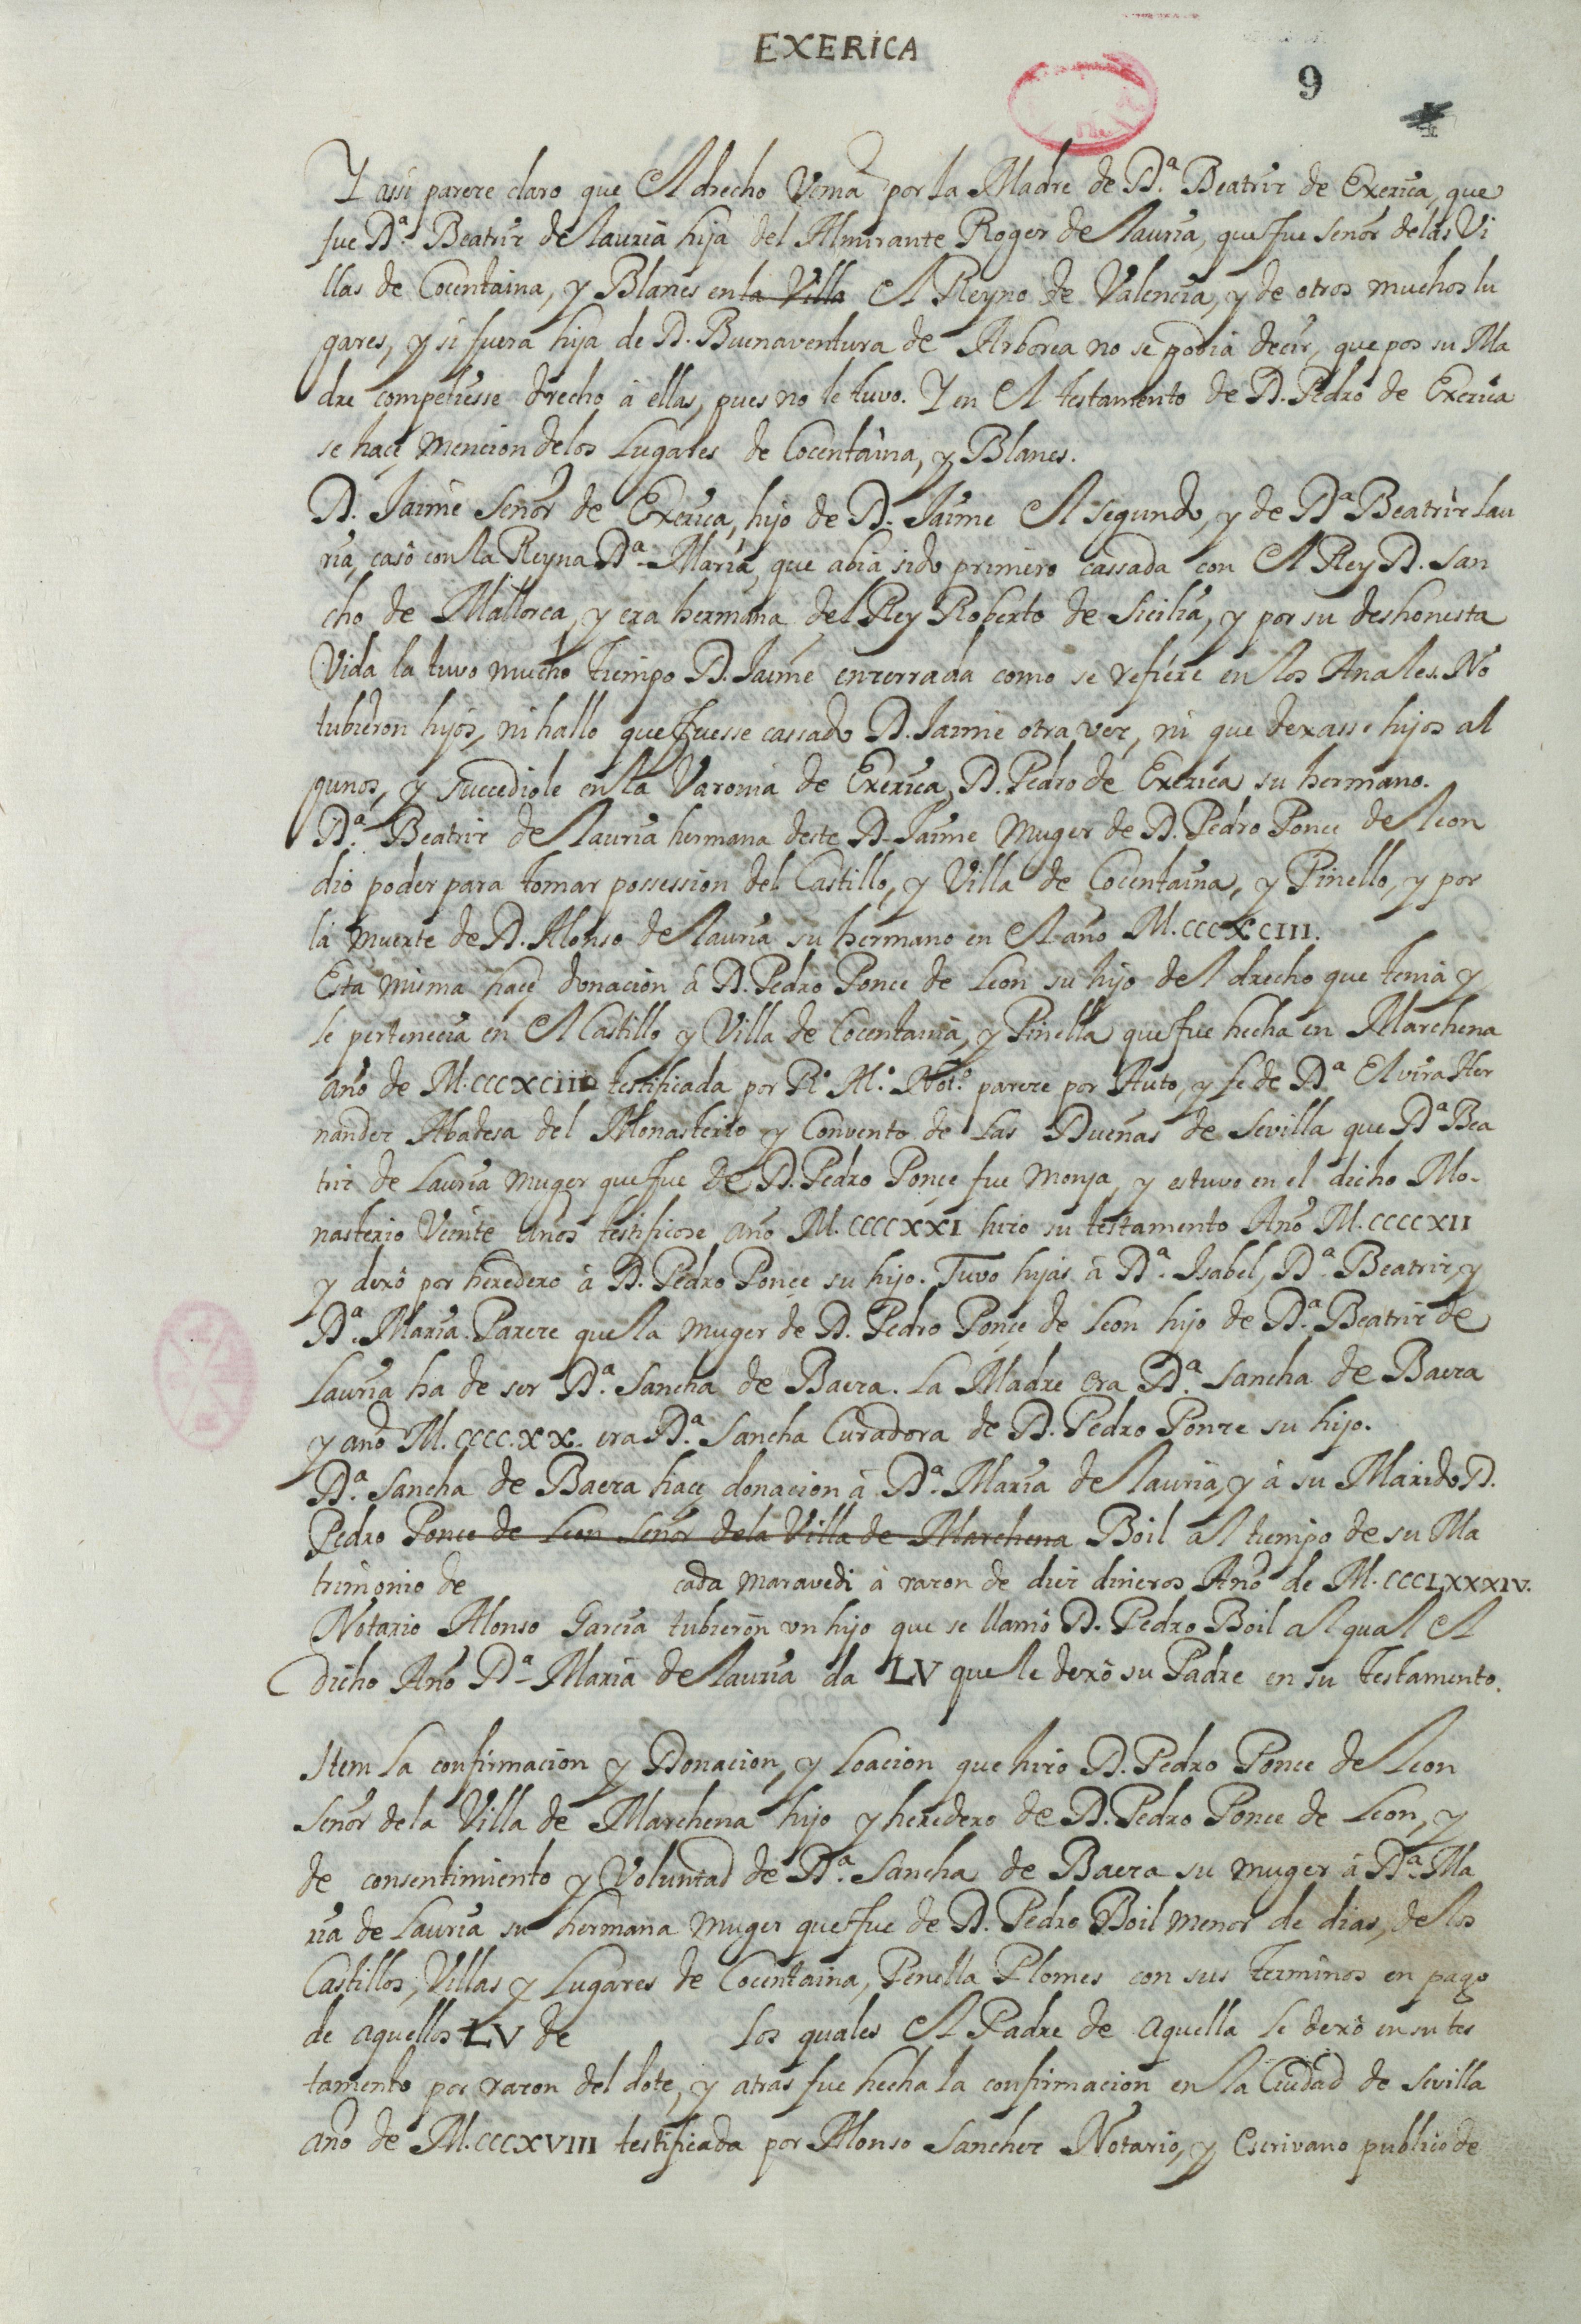 EXERICA
9
Y assi parece claro que el drecho venia por la Madre de D.ª Beatriz de Exerica, que
fue D.ª Beatriz de Lauria hija del Almirante Roger de Lauria, que fue Señor de las Vi
llas de Cocentaina, y Blanes en la Villa el Reyno de Valencia, y de otros muchos lu
gares, y si fuera hija de D. Buenaventura de Arborea no se podia decir, que por su Ma
dre competiesse drecho à ellas, pues no le tuvo. Y en el testamento de D. Pedro de Exerica
se hace mencion de los Lugares de Cocentaina, y Blanes.
D. Jaime Señor de Exerica, hijo de D. Jaime el segundo, y de D.ª Beatriz Lau
ria, casò con la Reyna D.ª Maria, que abia sido primero cassada con el Rey D. San
cho de Mallorca, y era hermana del Rey Roberto de Sicilia, y por su deshonesta
Vida la tuvo mucho tiempo D. Jaime encerrada como se refiere en los Anales. No
tubieron hijos, ni hallo que fuesse cassado D. Jaime otra vez, ni que dexasse hijos al
gunos, y succediole en la Varonia de Exerica, D. Pedro de Exerica su hermano.
D.ª Beatriz de Lauria hermana deste D. Jaime Muger de D. Pedro Ponce de Leon
diò poder para tomar possession del Castillo, y Villa de Cocentaina, y Pinello, y por
la muerte de D. Alonso de Lauria su hermano en el año M.CCCXCIII.
Esta misma hace donacion à D. Pedro Ponce de Leon su hijo del drecho que tenia y
le pertenecia en el Castillo y Villa de Cocentaina, y Pinella que fue hecha en Marchena
año de M.CCCXCIII testificada por R.º M.º Not.º parece por Auto, y fe de D.ª Elvira Her
nandez Abadesa del Monasterio y Convento de las Dueñas de Sevilla que D.ª Bea
triz de Lauria Muger que fue de D. Pedro Ponce fue Monja, y estuvo en el dicho Mo-
nasterio Veinte años testificose año M.CCCCXXI hizo su testamento Año M.CCCCXII
y dexò por heredero à D. Pedro Ponce su hijo. Tuvo hijas à D.ª Isabel, D.ª Beatriz, y
D.ª Maria. Parece que la muger de D. Pedro Ponce de Leon hijo de D.ª Beatriz de
Lauria ha de ser D.ª Sancha de Baeza. La Madre era D.ª Sancha de Baeza
y año M.CCCC.XX. era D.ª Sancha Curadora de D. Pedro Ponze su hijo.
D.ª Sancha de Baeza hace donacion à D.ª Maria de Lauria, y à su Marido D.
Pedro Ponce de Leon Señor de la Villa de Marchena Boil al tiempo de su Ma
trimonio de cada maravedi à razon de diez dineros Año de M.CCCLXXXIV.
Notario Alonso Garcia tubieron un hijo que se llamò D. Pedro Boil al qual el
dicho Año D.ª Maria de Lauria da LV que le dexò su Padre en su Testamento.
Item la confirmacion y Donacion, y Loacion que hizo D. Pedro Ponce de Leon
Señor de la Villa de Marchena hijo y heredero de D. Pedro Ponce de Leon, y
de consentimiento y Voluntad de D.ª Sancha de Baeza su muger à D.ª Ma
ria de Lauria su hermana muger que fue de D. Pedro Boil menor de dias, de los
Castillos, Villas y Lugares de Cocentaina, Penella Plomes con sus Terminos en pago
de aquellos LV de Los quales el Padre de aquella le dexò en su tes
tamento por razon del dote, y atras fue hecha la confirmacion en la Ciudad de Sevilla
año de M.CCCXVIII testificada por Alonso Sanchez Notario, y Escrivano publico de